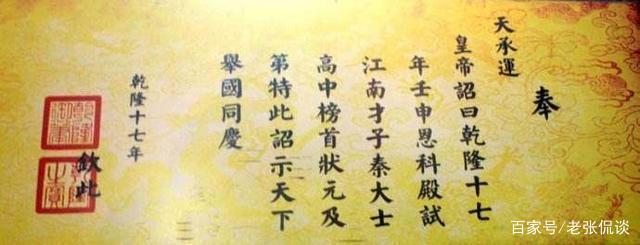 奉
天承運
皇帝詔曰乾隆十七
年壬申恩科殿試
江南才子秦大士
高中榜首狀元及
第特此詔示天下
舉國同慶
乾隆十七年
欽此
百家号/老张侃谈